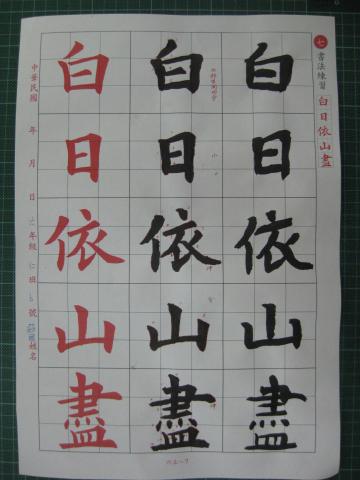 七 書法練習 白日依山盡
白日依山盡
白日依山盡
白日依山盡
中華民國 年 月 日 六年級 仁班 號 姓名